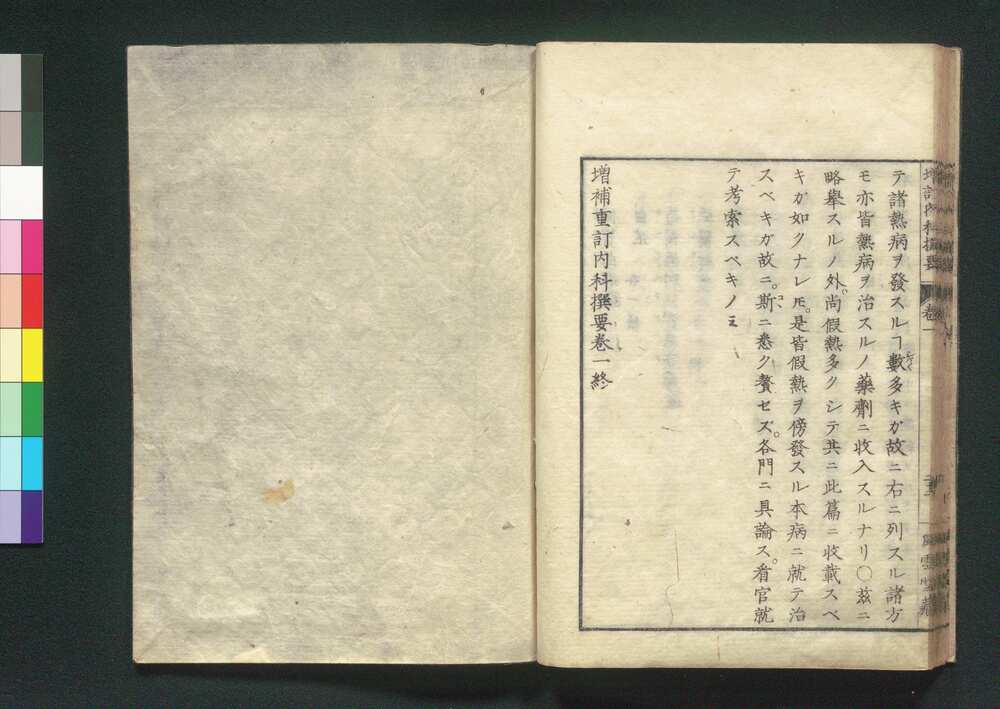 テ諸熱病ヲ發スルヿ數多キガ故ニ右ニ列スル諸方
モ亦皆熱病ヲ治スルノ藥劑ニ收入スルナリ〇茲ニ
略擧スルノ外尚假熱多クシテ共ニ此篇ニ收載スベ
キガ如クナレ𪜈。是皆假熱ヲ傍發スル本病ニ就テ治
スベキガ故ニ。斯ニ悉ク贅セズ。各門ニ具論ス。看官就
テ考索スベキノミ
増補重訂内科撰要卷一終
増訂内科撰要
卷一